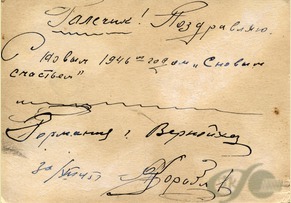 Галечик! Поздравляю
С Новым 1946 ым годом, "С новым
счастьем"
Германия г.
30/XII 45 г